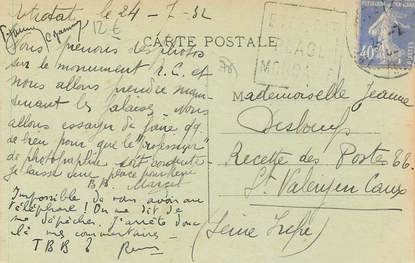 Etretat le 24-7-32
12€
CARTE POSTALE
Nous prenons des photos
sur le monument N.C. et
nous allons prendre main-
tenant les falaises. Nous
allons essayer de faire qq.
de bien pour que le "professeur"
de photographie soit contente
Je laisse une place pour
B.B. Marcel
Impossible de vous avoir au
téléphone ! On me dit de
me dépêcher. J'arrête donc
là mes commentaires -
T B B 6
Mademoiselle Jeanne
Recette des Postes
St Valery en Caux
(Seine Infre)
PLAGE
MONDAINE
40